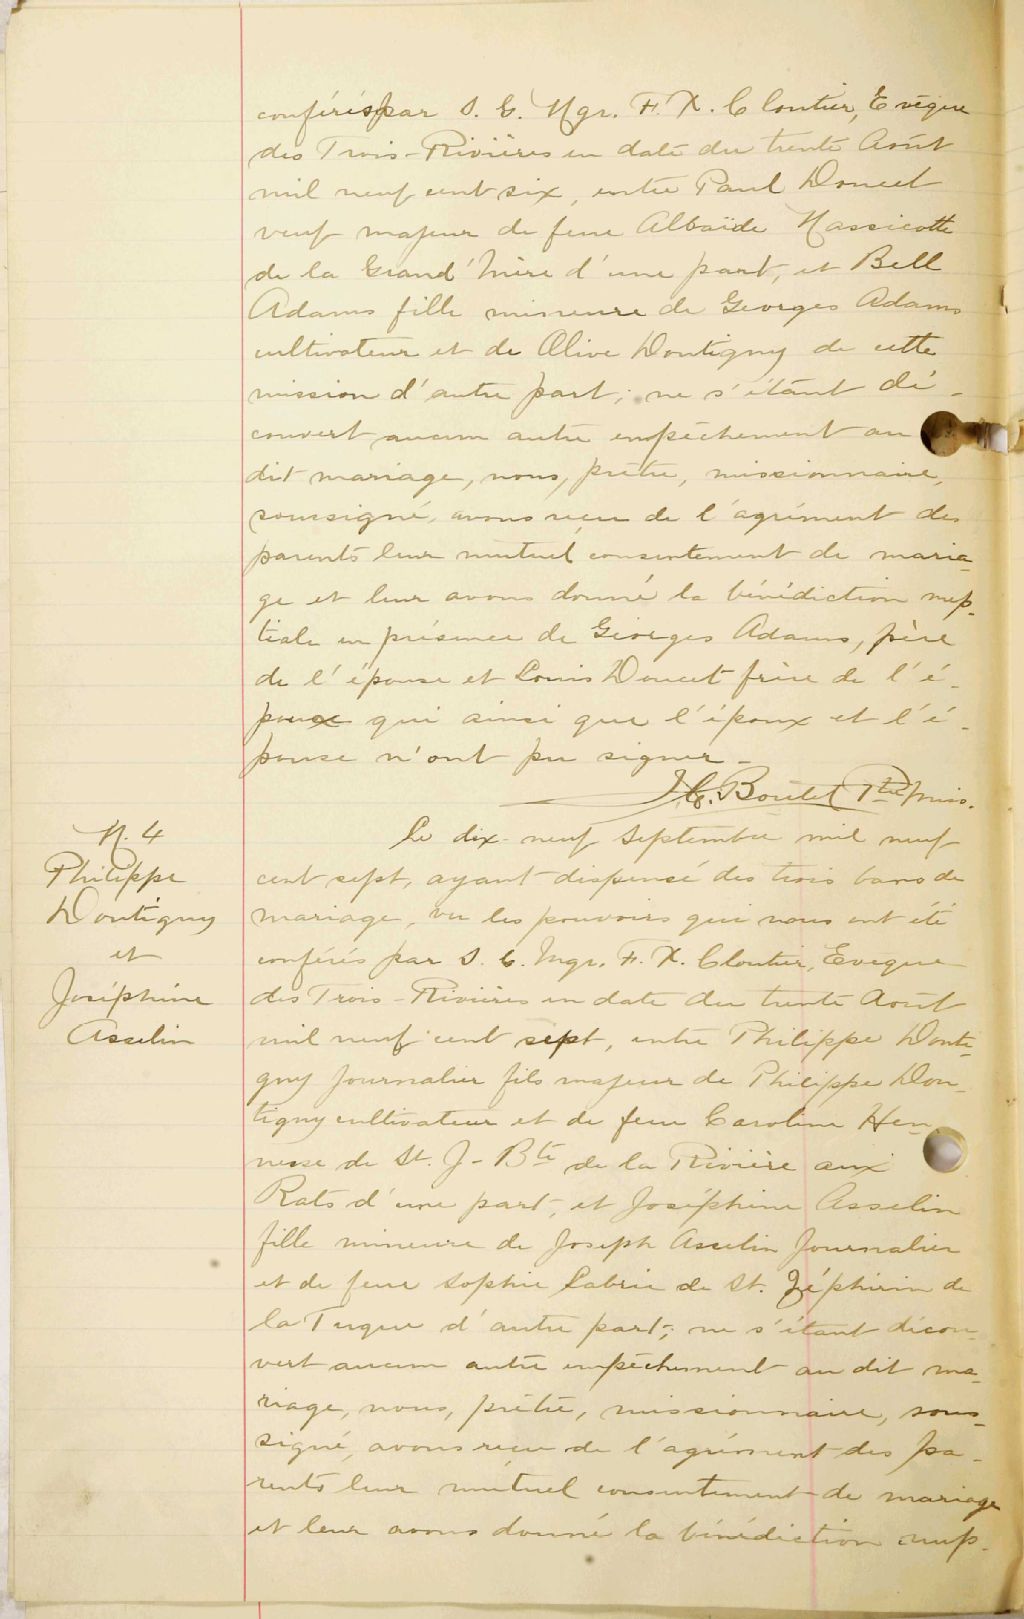 conférés par S. G. Mgr. F. X. Cloutier, Evêque
des Trois-Rivières en date du trente Août
mil neuf cent six, entre Paul Doucet
veuf majeur de feue Albaïde Massicotte
de la Grand'Mère d'une part, et Bell
Adams fille mineure de Georges Adams
cultivateur et de Olive Dontigny de cette
mission d'autre part; ne s'étant dé-
couvert aucun autre empêchement au
dit mariage, nous, prêtre, missionnaire,
soussigné, avons reçu de l'agrément des
parents leur mutuel consentement de maria-
ge et leur avons donné la bénédiction nup-
tiale en présence de Georges Adams, père
de l'épouse et Louis Doucet frère de l'é-
poux qui ainsi que l'époux et l'é-
pouse n'ont pu signer -
Boulet Ptre miss.
N. 4
Philippe
Dontigny
et
Joséphine
Asselin
Le dix-neuf Septembre mil neuf
cent sept, ayant dispensé des trois bans de
mariage, vu les pouvoirs qui nous ont été
conférés par S. G. Mgr. F. X. Cloutier, Eveque
des Trois-Rivières en date du trente Août
mil neuf cent sept, entre Philippe Donti-
gny Journalier fils majeur de Philippe Don-
tigny cultivateur et de feue Caroline Hen-
nesse de St. J-Bte de la Rivière aux
Rats d'une part, et Joséphine Asselin
fille mineure de Joseph Asselin Journalier
et de feue Sophie Labrie de St. Zéphirin de
la Tuque d'autre part; ne s'étant décou-
vert aucun autre empêchement au dit ma-
riage, nous, prêtre, missionnaire, sous-
signé, avons reçu de l'agrément des pa-
rents leur mutuel consentement de mariage
et leur avons donné la bénédiction nup-